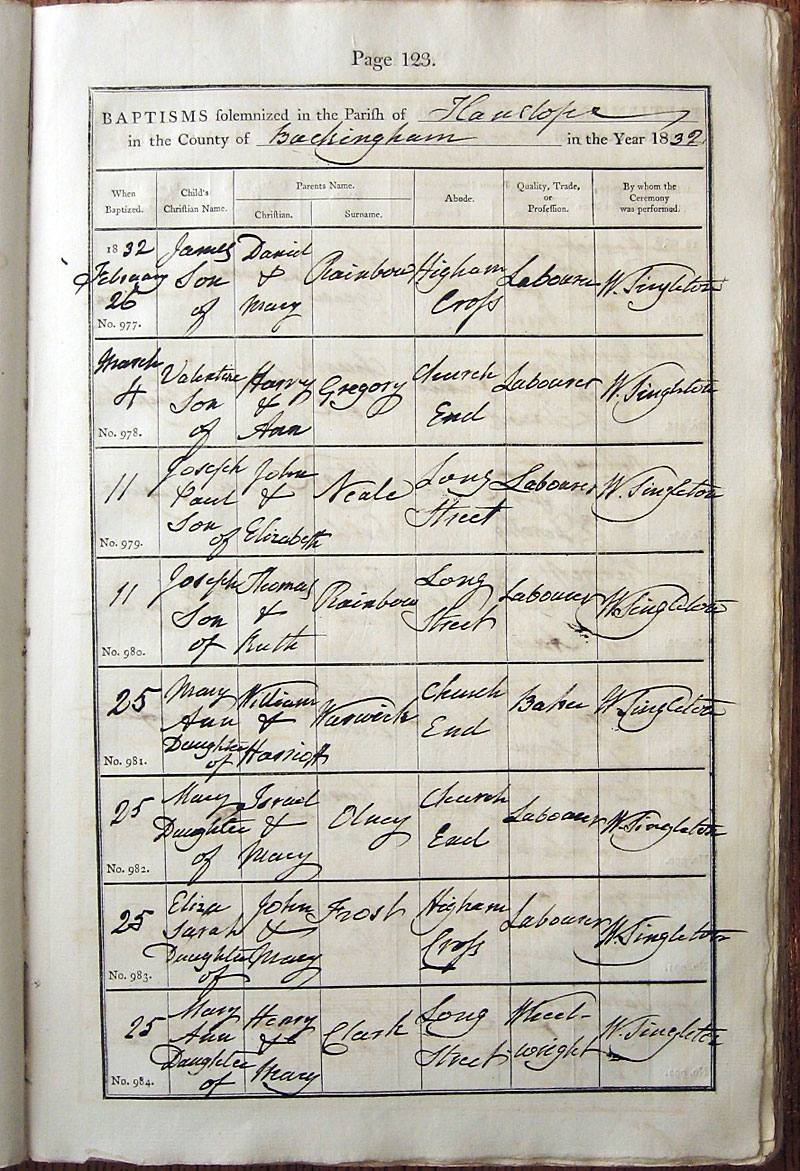 Page 123.
BAPTISMS solemnized in the Parish of Hanslope
in the County of Buckingham in the Year 1832
When Baptized. Child's Christian Name. Parents Name. Christian. Surname. Abode. Quality, Trade, or Profession. By whom the Ceremony was performed.
1832 James Daniel
February Son & Rainbow Higham Labourer W. Singleton
26 of Mary Cross
No. 977.
March Valentine Harry Gregory Church Labourer W. Singleton
4 Son & End
of Ann
No. 978.
Joseph John Long
11 Paul & Neale Street Labourer W. Singleton
Son of Elizabeth
No. 979.
Joseph Thomas Long
11 Son & Rainbow Street Labourer W. Singleton
of Ruth
No. 980.
Mary William Church
25 Ann & Warwick End Baker W. Singleton
Daughter of Harriott
No. 981.
Mary Israel Church
25 Daughter & Olney End Labourer W. Singleton
of Mary
No. 982.
Eliza John Frost Higham
25 Sarah & Cross Labourer W. Singleton
Daughter of Mary
No. 983.
Mary Henry Long Wheel-
25 Ann & Clark Street wright W. Singleton
Daughter of Mary
No. 984.